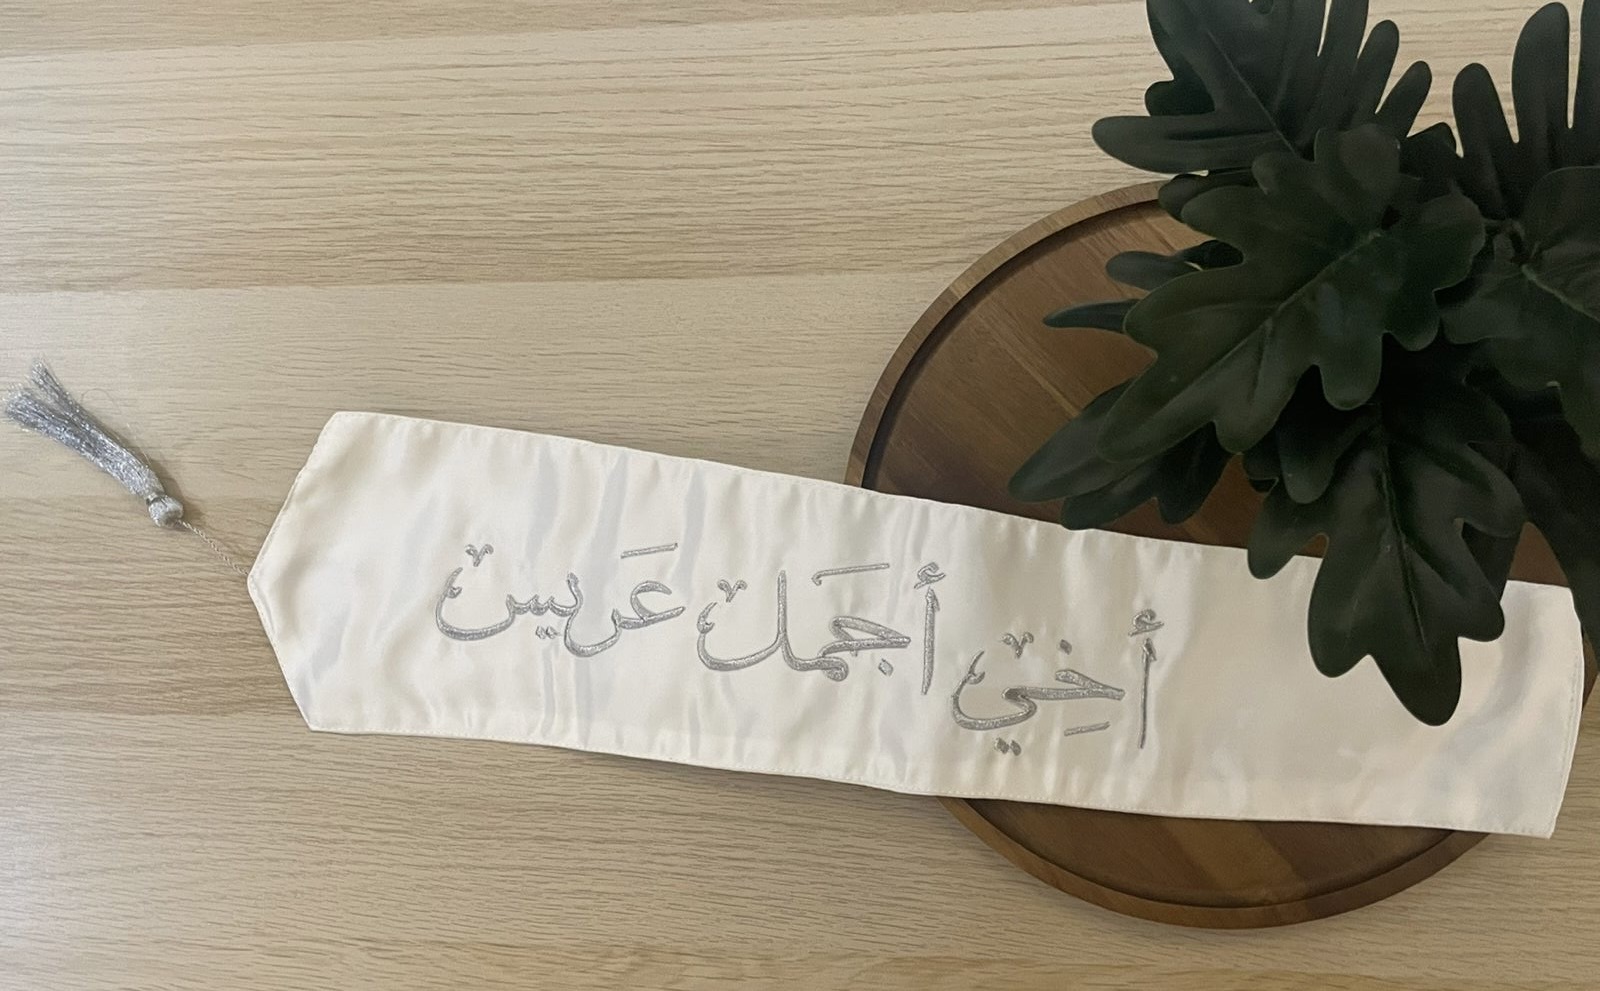 أَخِي أجمَل عَريس